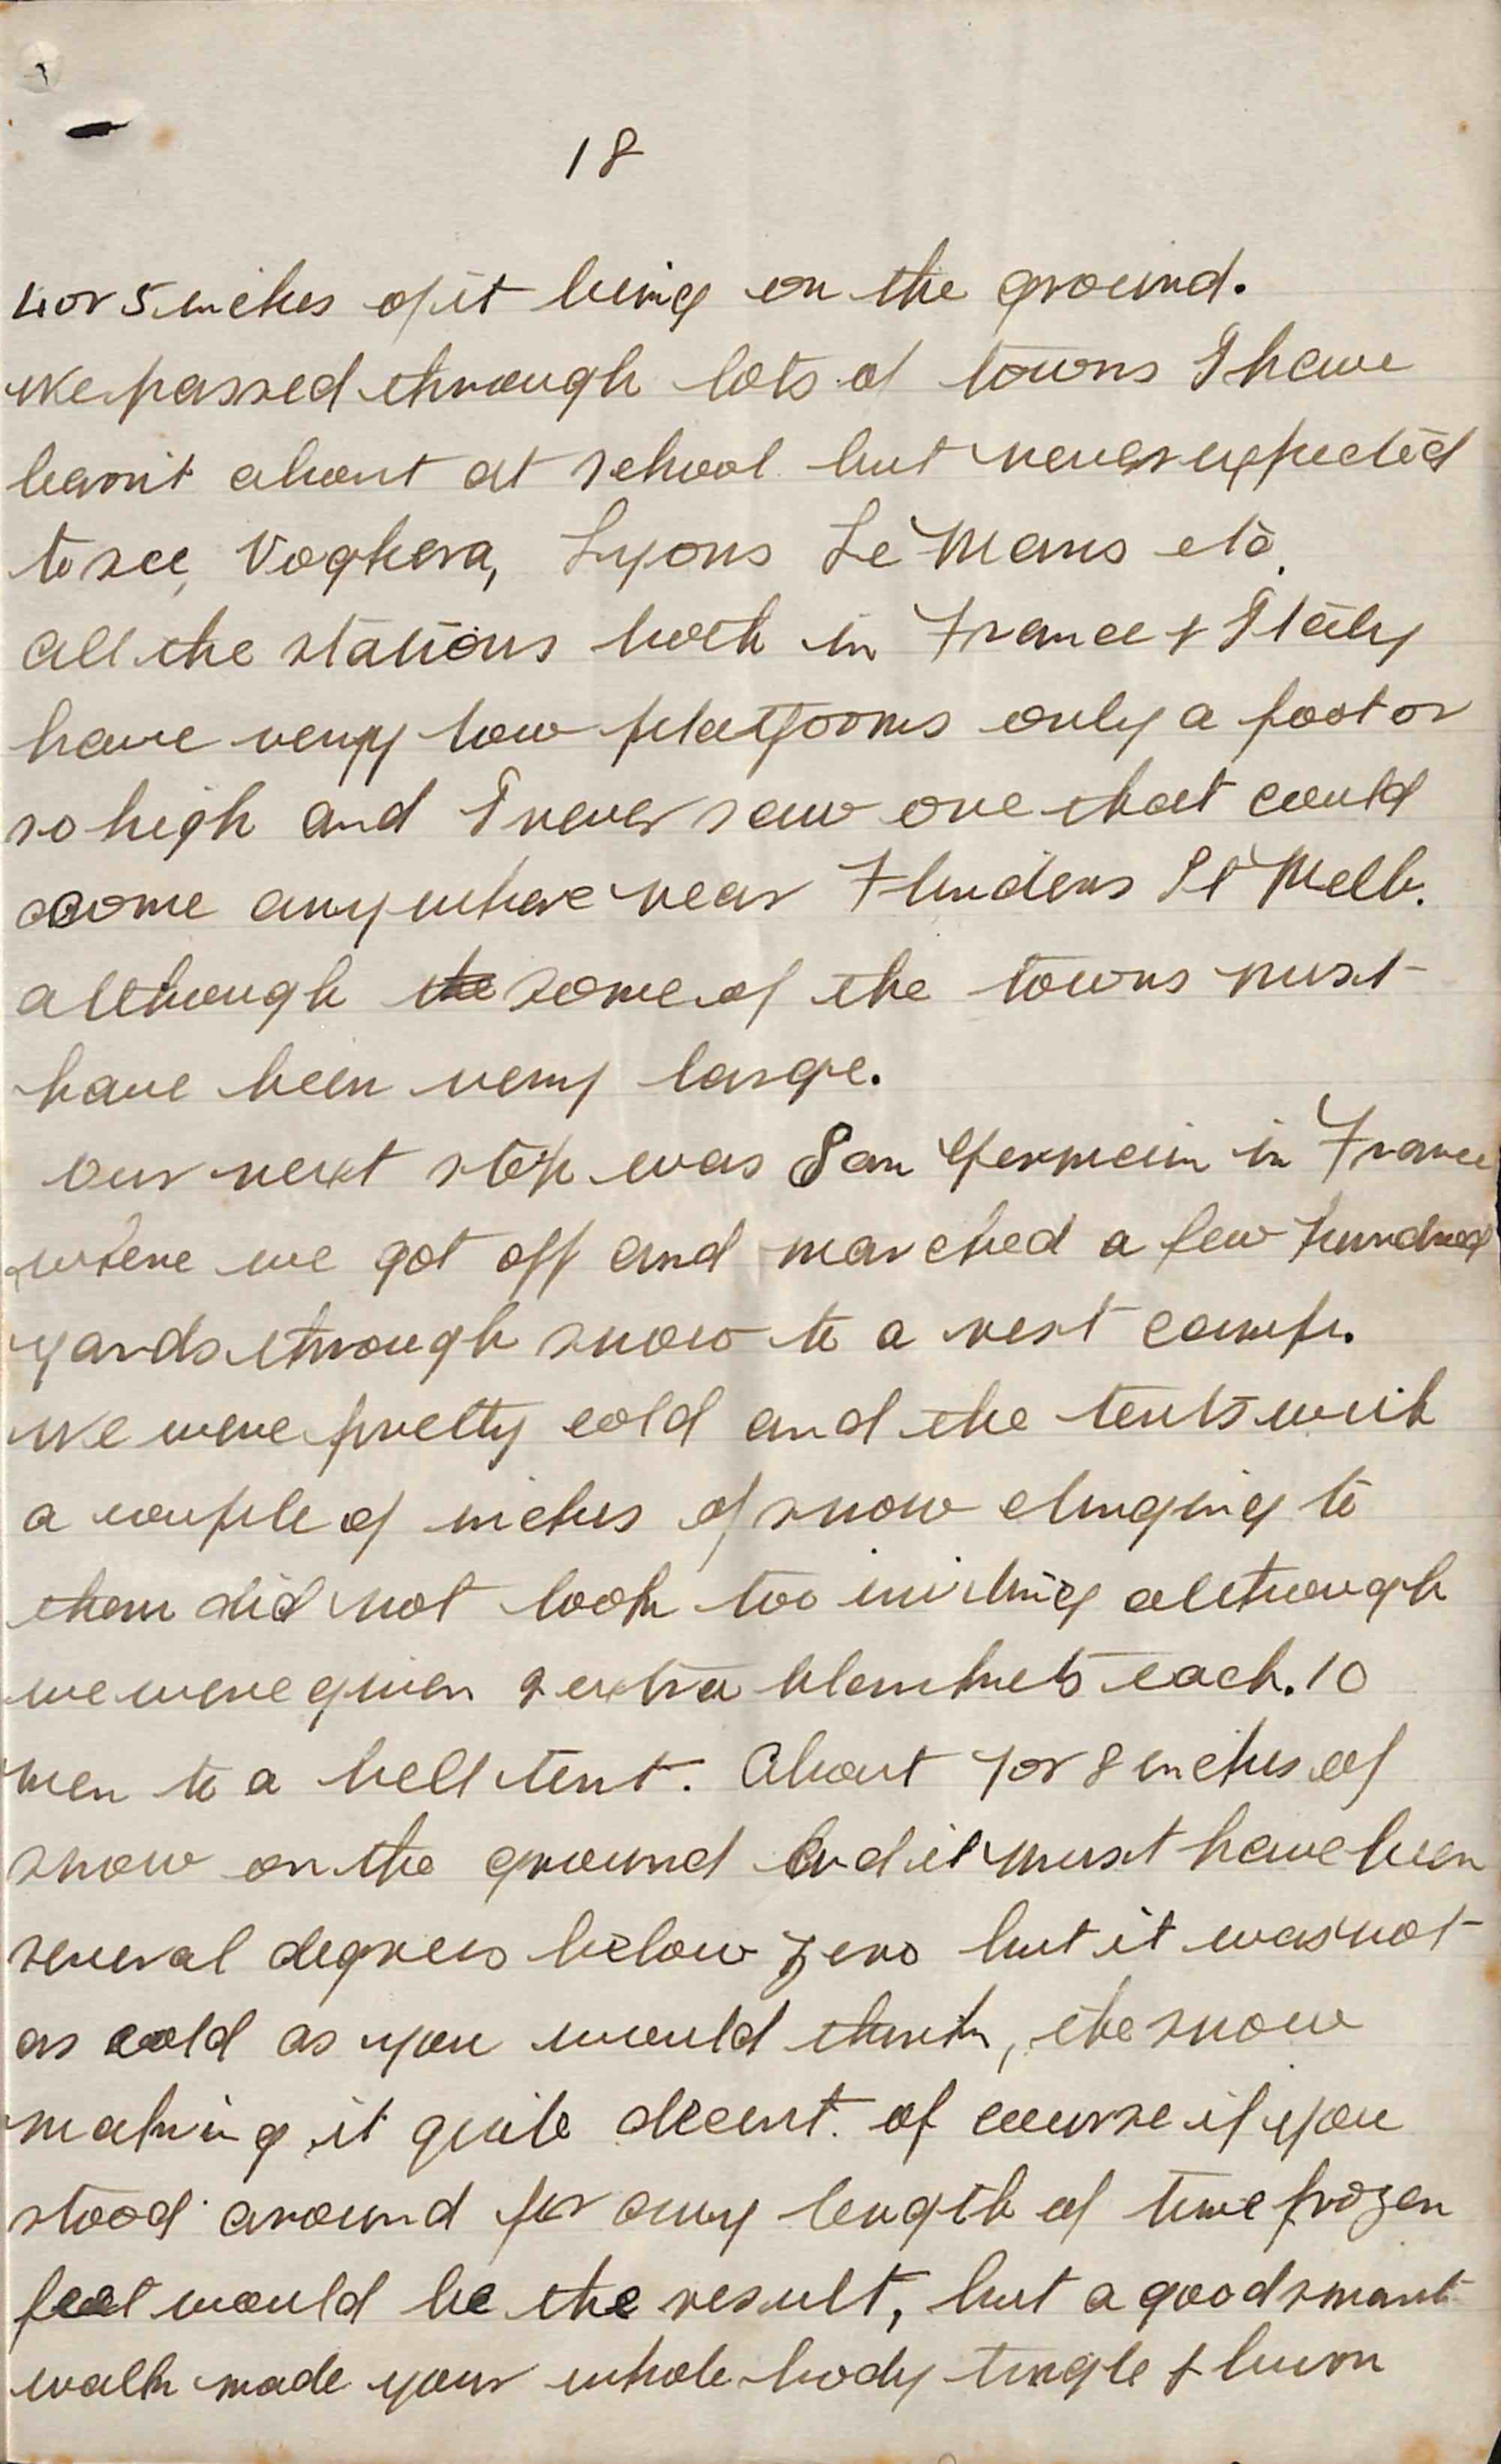 18
4 or 5 inches of it being on the ground.
We passed through lots of towns I have
learnt about at school but never expected
to see, Voghera, Lyons Le Mans etc.
All the stations both in France & Italy
have very low platforms only a foot or
so high and I never saw one that could
come anywhere near Flinders St Melb.
although the some of the towns must
have been very large.
Our next stop was San Germain in France
where we got off and marched a few hundred
yards through snow to a rest camp.
We were pretty cold and the tents with
a couple of inches of snow clinging to
them did not look too inviting although
we were given 2 extra blankets each. 10
men to a bell tent. About 7 or 8 inches of
snow on the ground and it must have been
several degrees below zero but it was not
as cold as you would think, the snow
making it quite decent. of course if you
stood around for any length of time frozen
feet would be the result, but a good smart
walk made your whole body tingle & burn